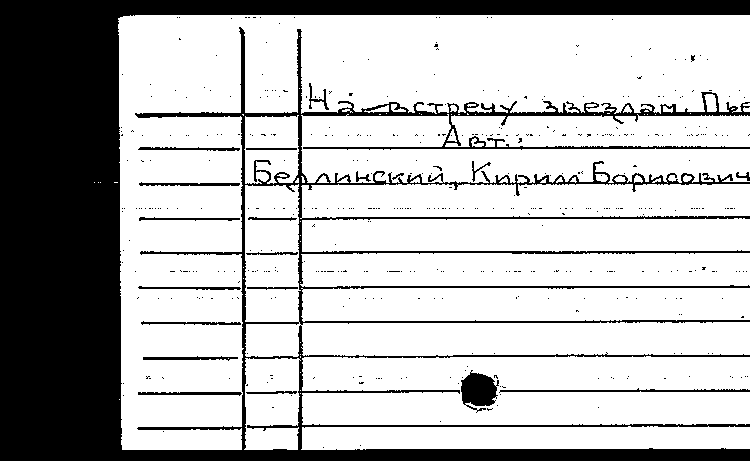 На встречу звездам. Пье
Авт.:
Бедлинский, Кирилл Борисович